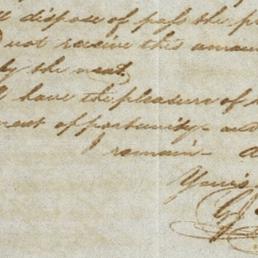 dispose of pass the
not receive this amoun
by the next
have the pleasure of
next opportunity - and
I remain -
Yours